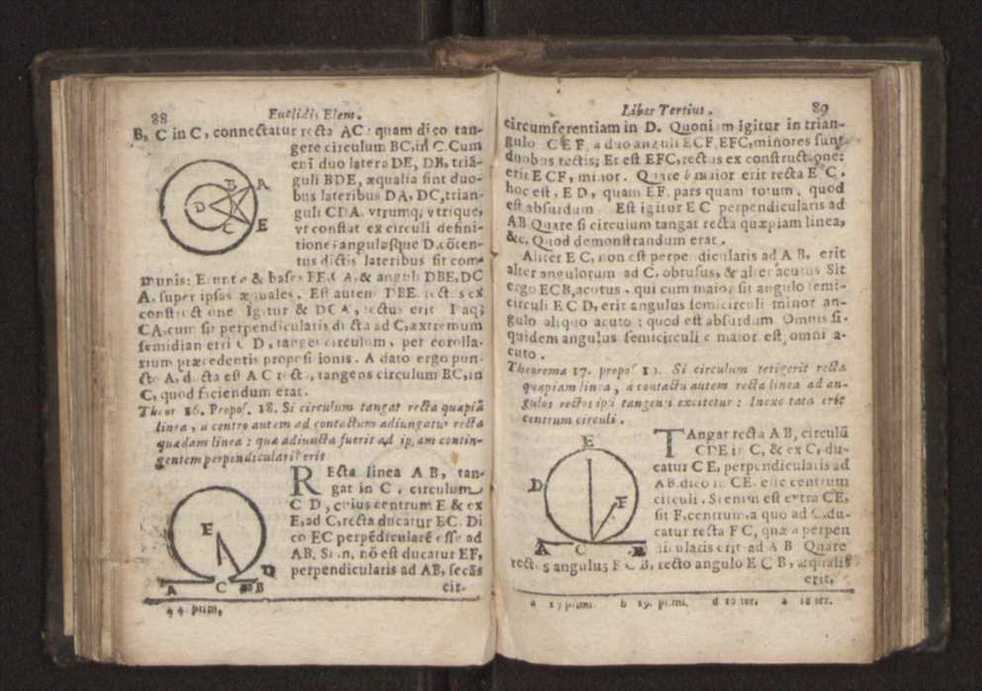 88 Euclidis Elem.
B, C in C, connectatur recta AC: quam dico tan-
gere circulum BC, in C. Cum
enī duo latera DE, DB, triā-
guli BDE, æqualia sint duo-
bus lateribus DA, DC, trian-
guli CDA. vtrumq; vtrique,
vt constat ex circuli defini-
tione: angulūsque D. cōten-
tus dictis lateribus sit com-
munis: Erunt & bases BE, CA, & anguli DBE, DC
A, super ipsas æquales. Est autem DBE rectus ex
constructione. Igitur & DCA, rectus erit. Itaq;
CA, cum sit perpendicularis ducta ad C, extremum
semidiametri CD, tanget circulum, per corolla-
rium præcedentis propositionis. A dato ergo pun-
cto A, ducta est AC recta, tangens circulum BC, in
C, quod faciendum erat.
Theor 16. Propos. 18. Si circulum tangat recta quæpiā
linea, a centro autem ad contactum adiungatur recta
quædam linea: quæ adiuncta fuerit ad ipsam contin-
gentem perpendicularis erit
REcta linea AB, tan-
gat in C, circulum
CD, cuius centrum E & ex
E, ad C, recta ducatur EC. Di
co EC perpēdicularē esse ad
AB. Si n, nō est ducatur EF,
perpendicularis ad AB, secās
cir-
4. primi,
B A D C E
E A C B D
Liber Tertius. 89
circumferentiam in D. Quoniam igitur in trian-
gulo CEF, duo anguli ECF, EFC, minores sunt
duobus rectis; Et est EFC, rectus ex constructione:
erit ECF, minor. Quare b maior erit recta EC,
hoc est, ED, quam EF, pars quam totum, quod
est absurdum. Est igitur EC perpendicularis ad
AB Quare si circulum tangat recta quæpiam linea,
&c, Quod demonstrandum erat.
Aliter EC, non est perpendicularis ad AB, erit
alter angulorum ad C, obtusus, & alter acutus Sit
ergo ECB, acutus. qui cum maior sit angulo semi-
circuli ECD, erit angulus semicirculi minor an-
gulo aliquo acuto: quod est absurdum. Omnis si-
quidem angulus semicirculi maior est, omni a-
cuto.
Theorema 17. propos 19. Si circulum tetigerit recta
quæpiam linea, a contactu autem recta linea ad an-
gulos rectos ipsi tangenti excitetur: In excitata erit
centrum circuli.
TAngat recta AB, circulū
CDE in C, & ex C, du-
catur CE, perpendicularis ad
AB. dico in CE, esse centrum
circuli. Si enim est extra CE,
sit F, centrum, a quo ad C, du-
catur recta FC, quæ a perpen
dicularis erit ad AB Quare
rectus angulus FCB, recto angulo ECB, æqualis
erit,
a 17 primi. b 19. primi. d 18 ter.
E D F A C B